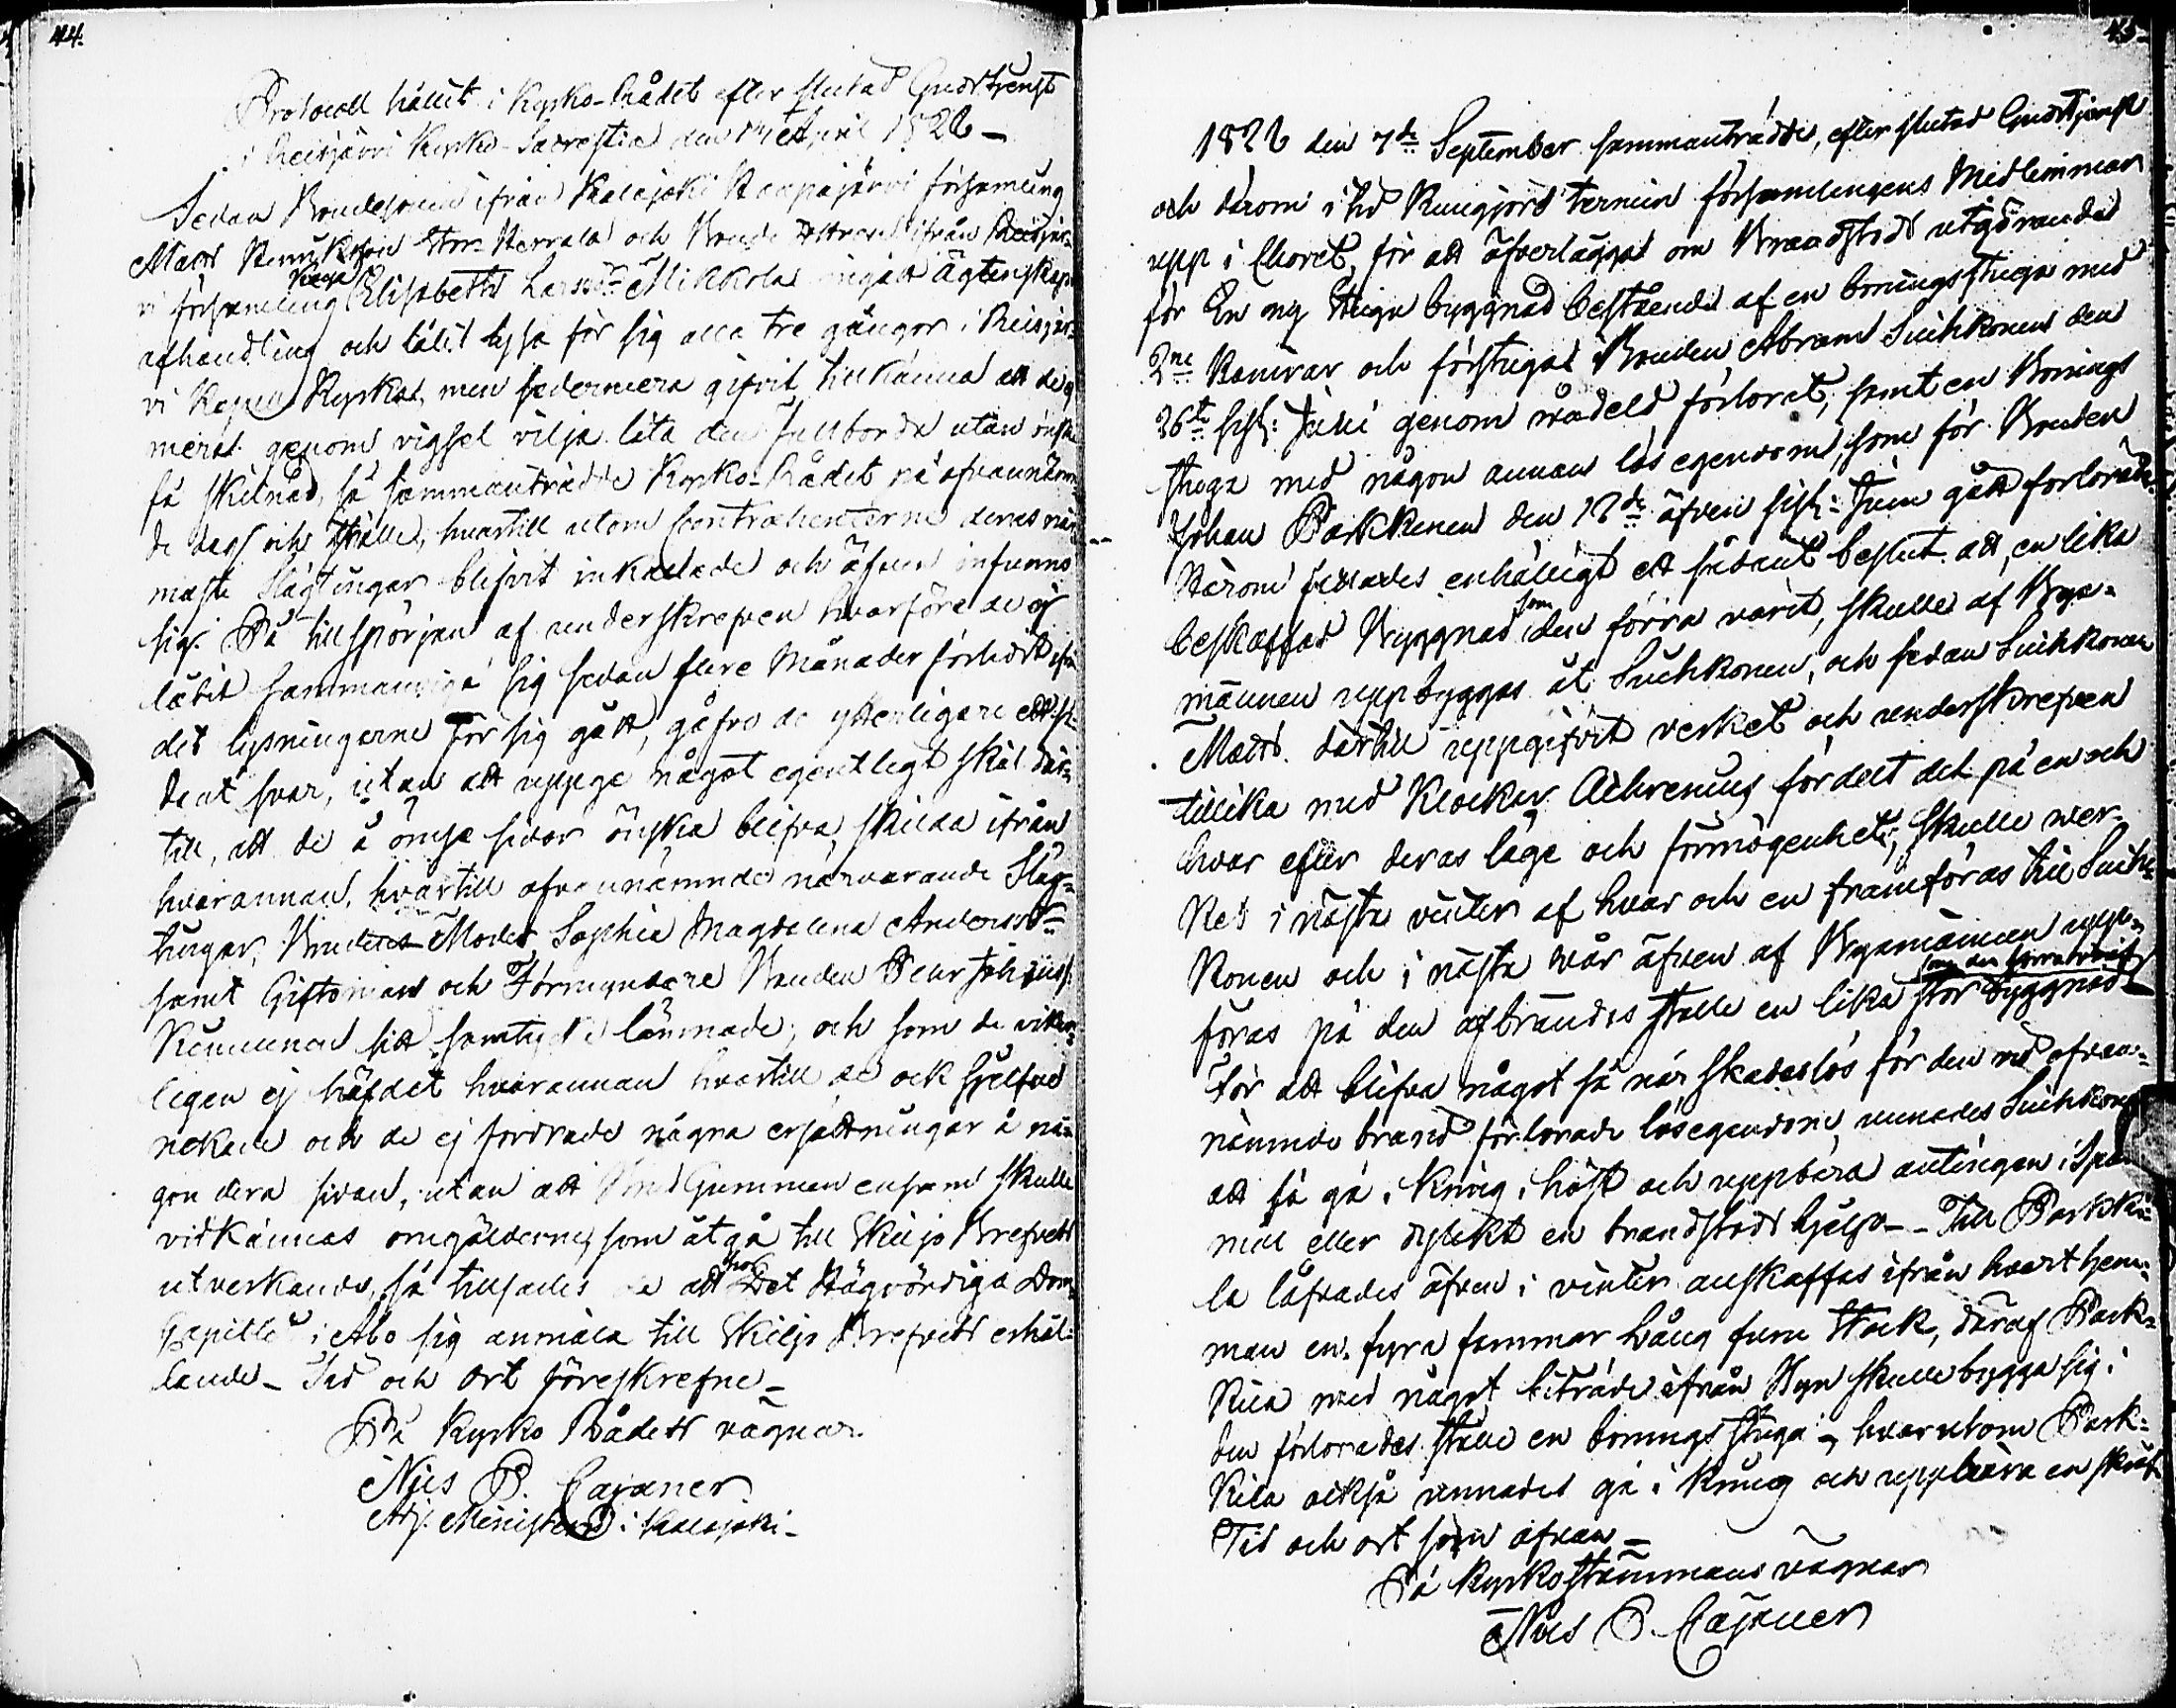 44.
Protocoll hållit i Kyrko-Rådet efter slutad Gudstjenst
i Reisjärvi Kyrko-Sacrestia den 14 April 1822 –
Sedan Bondesonen ifrån Kalajoki Haapajärvi församling
Matts Henriksson och Bonde Dottren ifrån Reisjär-
vi församling Kaisa Elisabetha Larsd:r Mikkola ingått Ägtenskaps
afhandling och låtit lysa för sig alla tre gångor i Reisjär-
vi Kapell Kyrka, men sedermera gifvit tillkänna att de ej
mera genom vigsel vilja låta den fullborda utan önska
få skilnad, så sammanträdde Kyrko-Rådet på ofvannämn-
de dag och ställe, hvartill utom Contrahenterne deras när-
maste Slägtingar blifvit inkallade och äfven infunno
sig. På tillspörjan af underskrefven hvarföre de ej
låtit sammanviga sig sedan flere Månader förlidit ifrån
det lysningarne för sig gått, gåfvo de ytterligare ett så-
dant svar, utan att uppge något egentligt skäl där-
till, att de å ömse sidor önska blifva skilda ifrån
hvarannan, hvartill ofvannämnde närvarande Släg-
tingar, Brudens Moder Sophia Magdalena Andersd:r
samt Giftoman och Förmyndare Bonden Pehr Johanss:
Kinnunen sitt samtycke lämnade; och som de vitter-
ligen ej häfdat hvarannan hvartill de ock sjelfve
nekade och de ej fordrade några ersättningar å nå-
gondera sidan, utan att Gumman ensam skulle
vidkännas omgälderne, som åtgå till Skiljo Brefvets
utverkande, så tillsades de att hos Det Högvördiga Dom
Capitlet i Åbo sig anmäla till Skiljo Brefvets erhål-
lande – Tid och Ort föreskrefne –
På Kyrko Rådets vägnar
Nils P. Cajaner
Adj. Ministerii i Kalajoki –
45
1822 den 7de September sammanträdde, efter slutad Gudstjenst
och därom i tid kungjord termin församlingens Medlemmar
upp i Choret, för att öfverlägga om Brandstods utgörande
för En ny Stuga byggnad bestående af en boningsstuga med
2ne Kamrar och förstuga Bonden Abram Suihkonen den
26te sisl: Julii genom vådeld förlorat, samt en Bonings
stuga med någon annan lös egendom, som för Bonden
Johan Parkkinen den 12de äfven sisl: Juni gått förlorad.
Härom fattades enhälligt ett sådant beslut att en lika
beskaffad Byggnad som den förra varit, skulle af Bya-
männen uppbyggas åt Suihkonen, och sedan Suihkonen
Matts därtill uppgifvit verket och underskrefven
tillika med Klockar Achrenius fördelt det på en och
hvar efter deras läge och förmögenhet, skulle ver-
ket i nästa vinter af hvar och en framföras till Suih-
konen och i nästa vår äfven af Byamännen upp-
föras på den afbrändes ställe en lika stor byggnad som den förra varit
För att blifva något så när skadeslös för den vid ofvan-
nämnde brand förlorade lösegendom, unnades Suihkonen
att få gå i kring i höst och uppbära antingen i Span-
mål eller dylikt en brandstods hjelp – Till Parkki-
la låfvades äfven i vinter anskaffas ifrån hvart hem-
man en fyra famnar lång furu Stock, däraf Park-
kila med något biträde ifrån Byn skulle bygga sig i
den förlorades ställe en boningsstuga –, hvarutom Park-
kila också unnades gå i kring och uppbära en skutt
Tid och ort som ofvan –
På Kyrkostämmans vägnar
Nils P. Cajaner